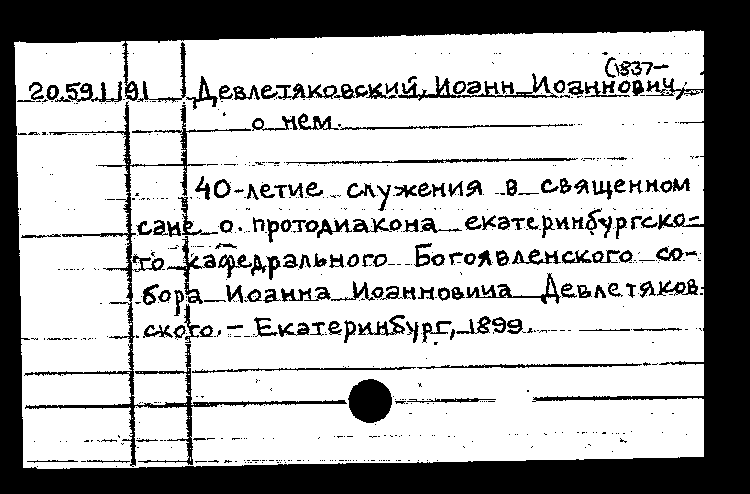 (1837–
20.59.1.191 Девлетяковский, Иоанн Иоаннович,
о нем.
40-летие служения в священном
сане о. протодиакона екатеринбургско-
го кафедрального Богоявленского со-
бора Иоанна Иоанновича Девлетяков-
ского. – Екатеринбург, 1899.